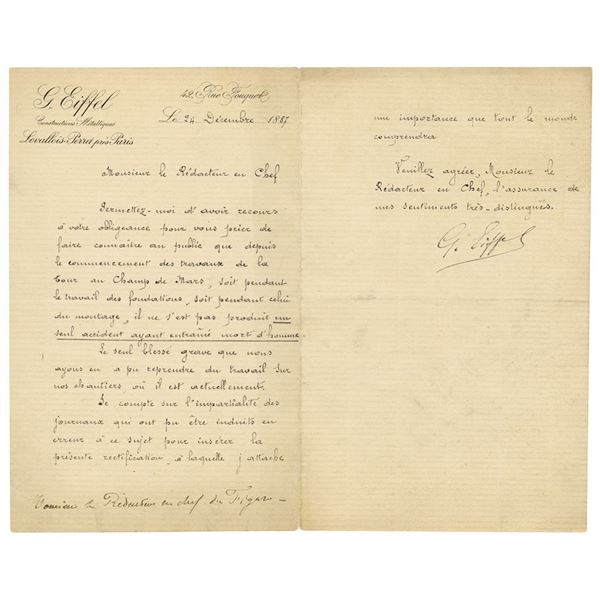 G. Eiffel
Constructions Métalliques
Levallois-Perret, près Paris
42, Rue Fouquet
Le 24 Décembre 1887
Monsieur le Rédacteur en Chef
Permettez-moi d'avoir recours
à votre obligeance pour vous prier de
faire connaître au public que depuis
le commencement des travaux de la
Tour au Champ de Mars, soit pendant
le travail des fondations, soit pendant celui
du montage, il ne s'est pas produit un
seul accident ayant entraîné mort d'homme.
Le seul blessé grave que nous
ayons eu a pu reprendre du travail sur
nos chantiers où il est actuellement.
Je compte sur l'impartialité des
journaux qui ont pu être induits en
erreur à ce sujet pour insérer la
présente rectification, à laquelle j'attache
Monsieur le Rédacteur en chef du Figaro -
une importance que tout le monde
comprendra
Veuillez agréer, Monsieur le
Rédacteur en Chef, l'assurance de
mes sentiments très-distingués.
G. Eiffel